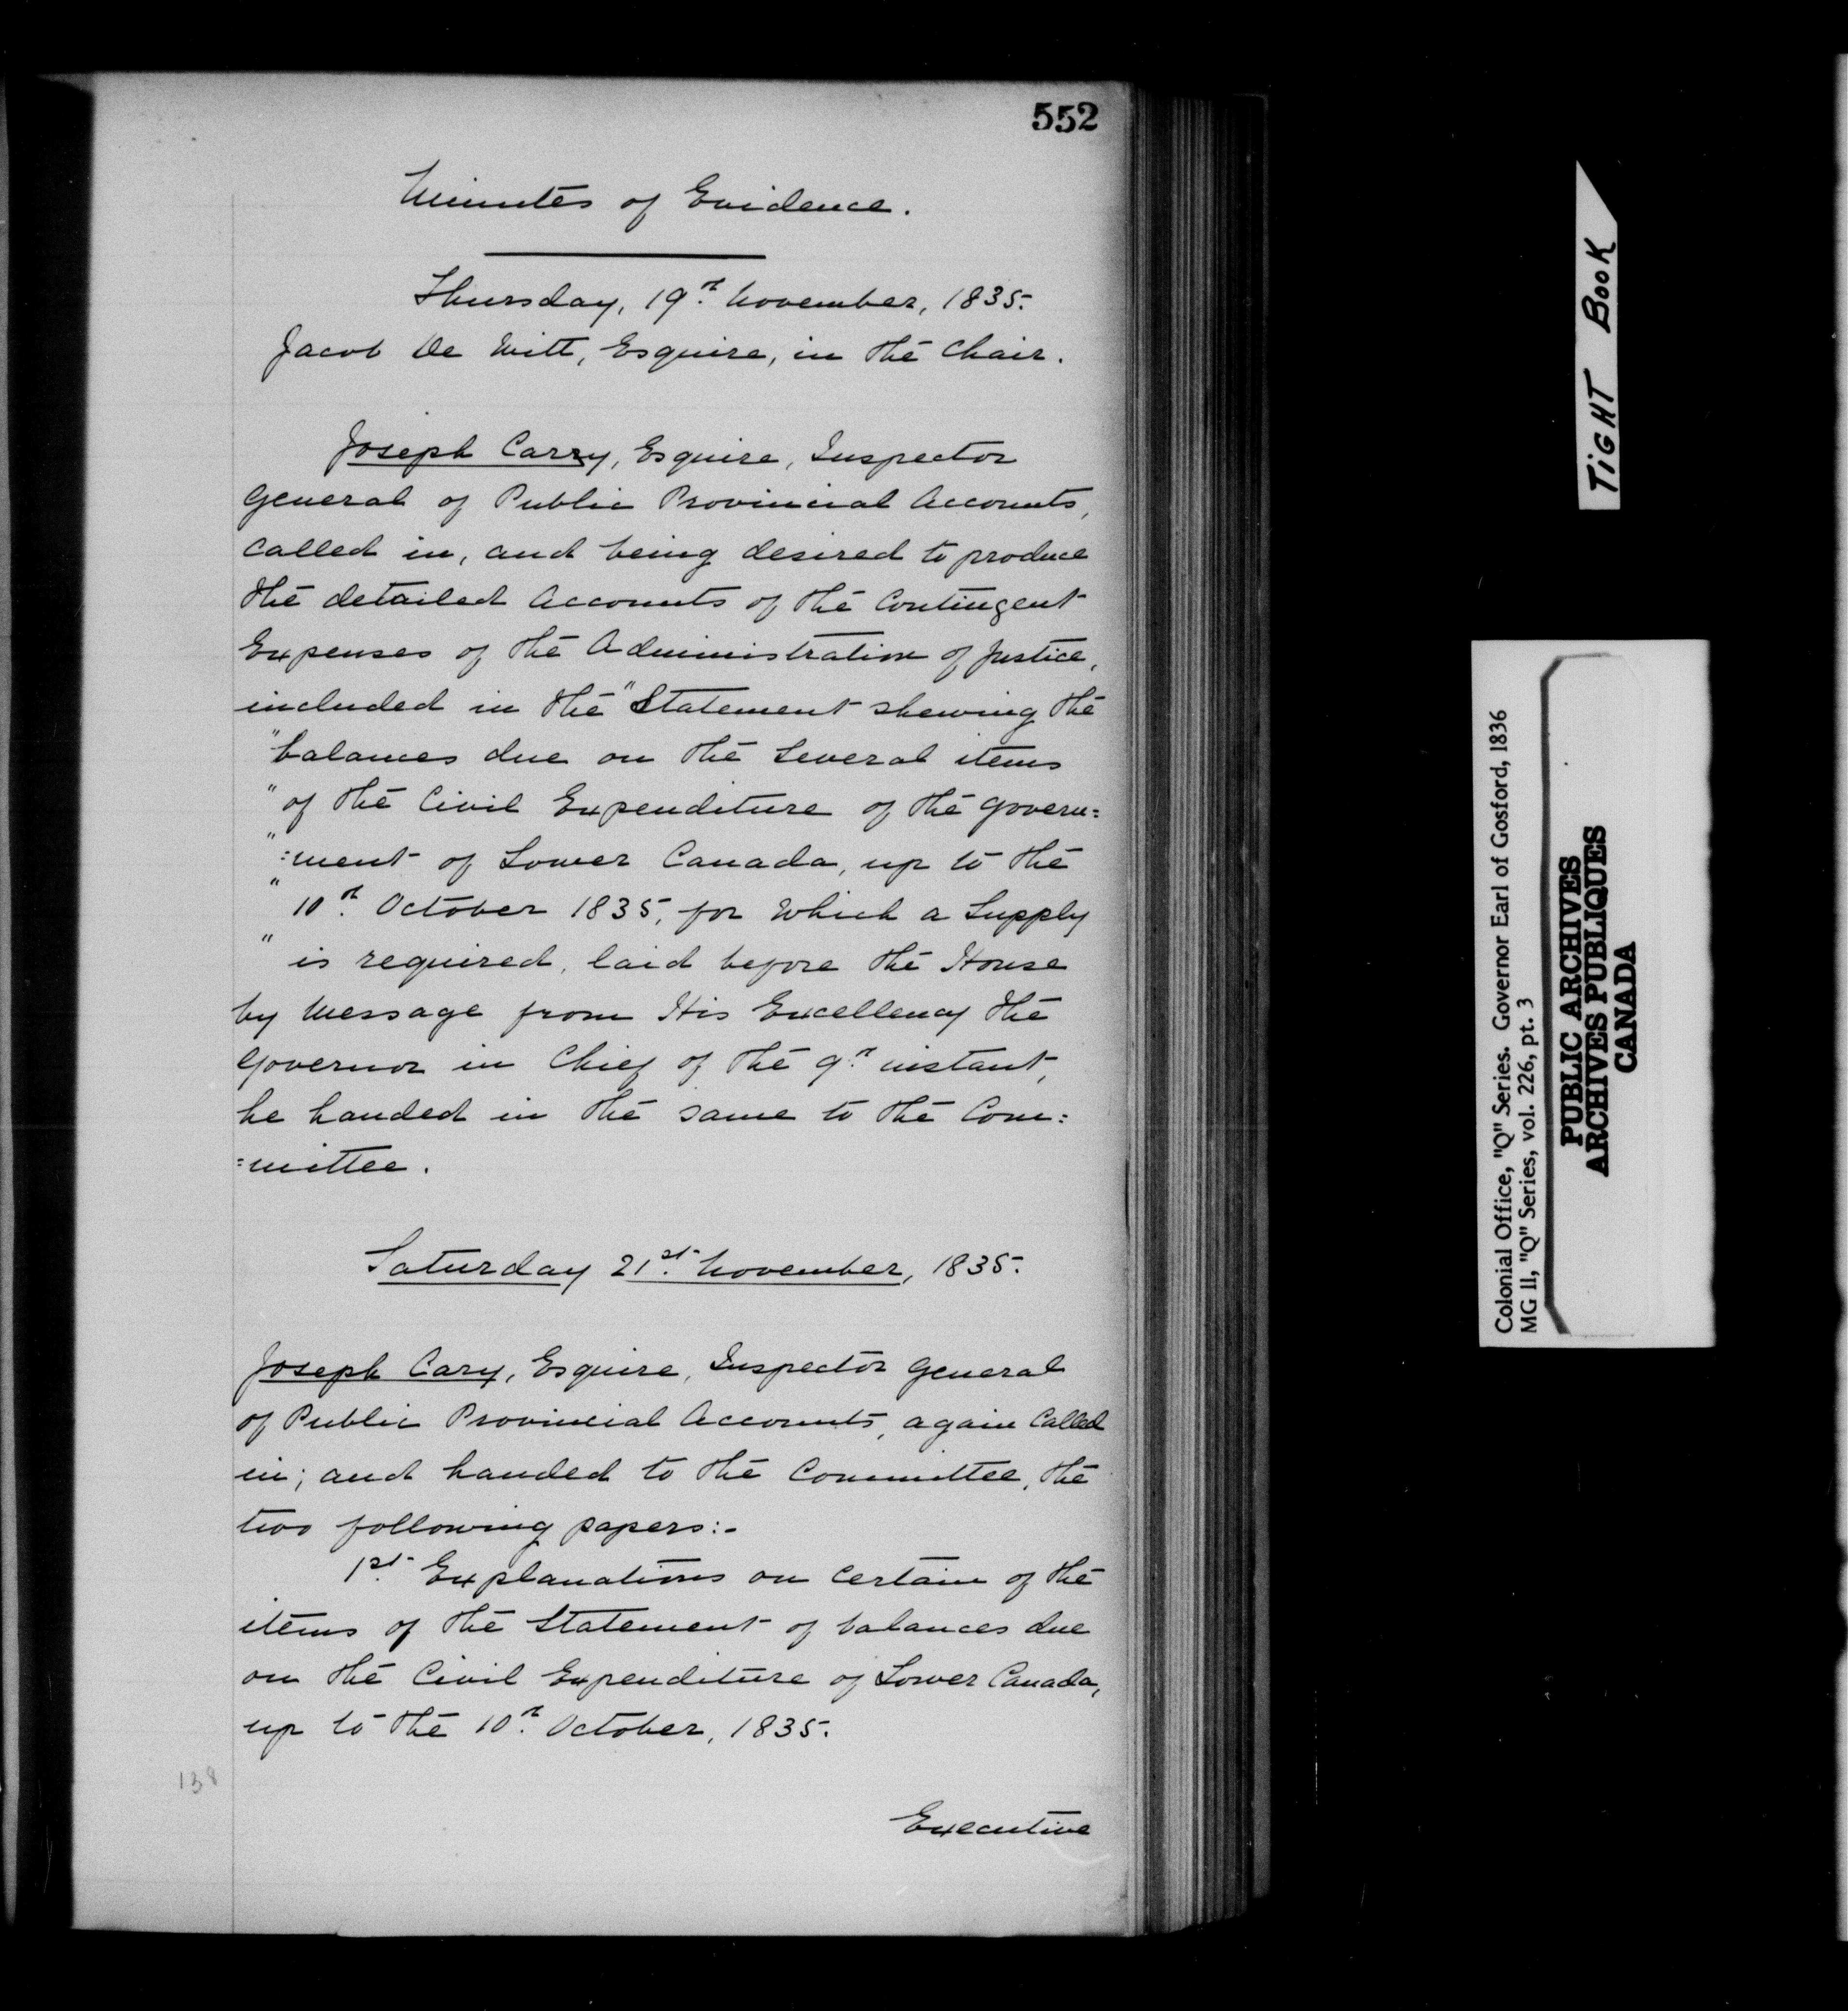 552
Minutes of Evidence.
Thursday, 19th November, 1835.
Jacob De Witt, Esquire, in the Chair.
Joseph Carry, Esquire, Inspector
General of Public Provincial Accounts,
called in, and being desired to produce
the detailed Accounts of the Contingent
Expenses of the Administration of Justice,
included in the "Statement shewing the
"balances due on the several items
"of the Civil Expenditure of the Govern=
":ment of Lower Canada, up to the
"10th October 1835, for which a Supply
"is required, laid before the House
by Message from His Excellency the
Governor in Chief of the 9th instant,
he handed in the same to the Com:
=mittee.
Saturday 21st November, 1835.
Joseph Cary, Esquire, Inspector General
of Public Provincial Accounts, again called
in; and handed to the Committee, the
two following papers:-
1st Explanations on certain of the
items of the Statement of balances due
on the Civil Expenditure of Lower Canada,
up to the 10th October, 1835.
138
Executive
TiGHT BOOK
Colonial Office, "Q" Series. Governor Earl of Gosford, 1836
MG 11, "Q" Series, vol. 226, pt. 3
PUBLIC ARCHIVES
ARCHIVES PUBLIQUES
CANADA